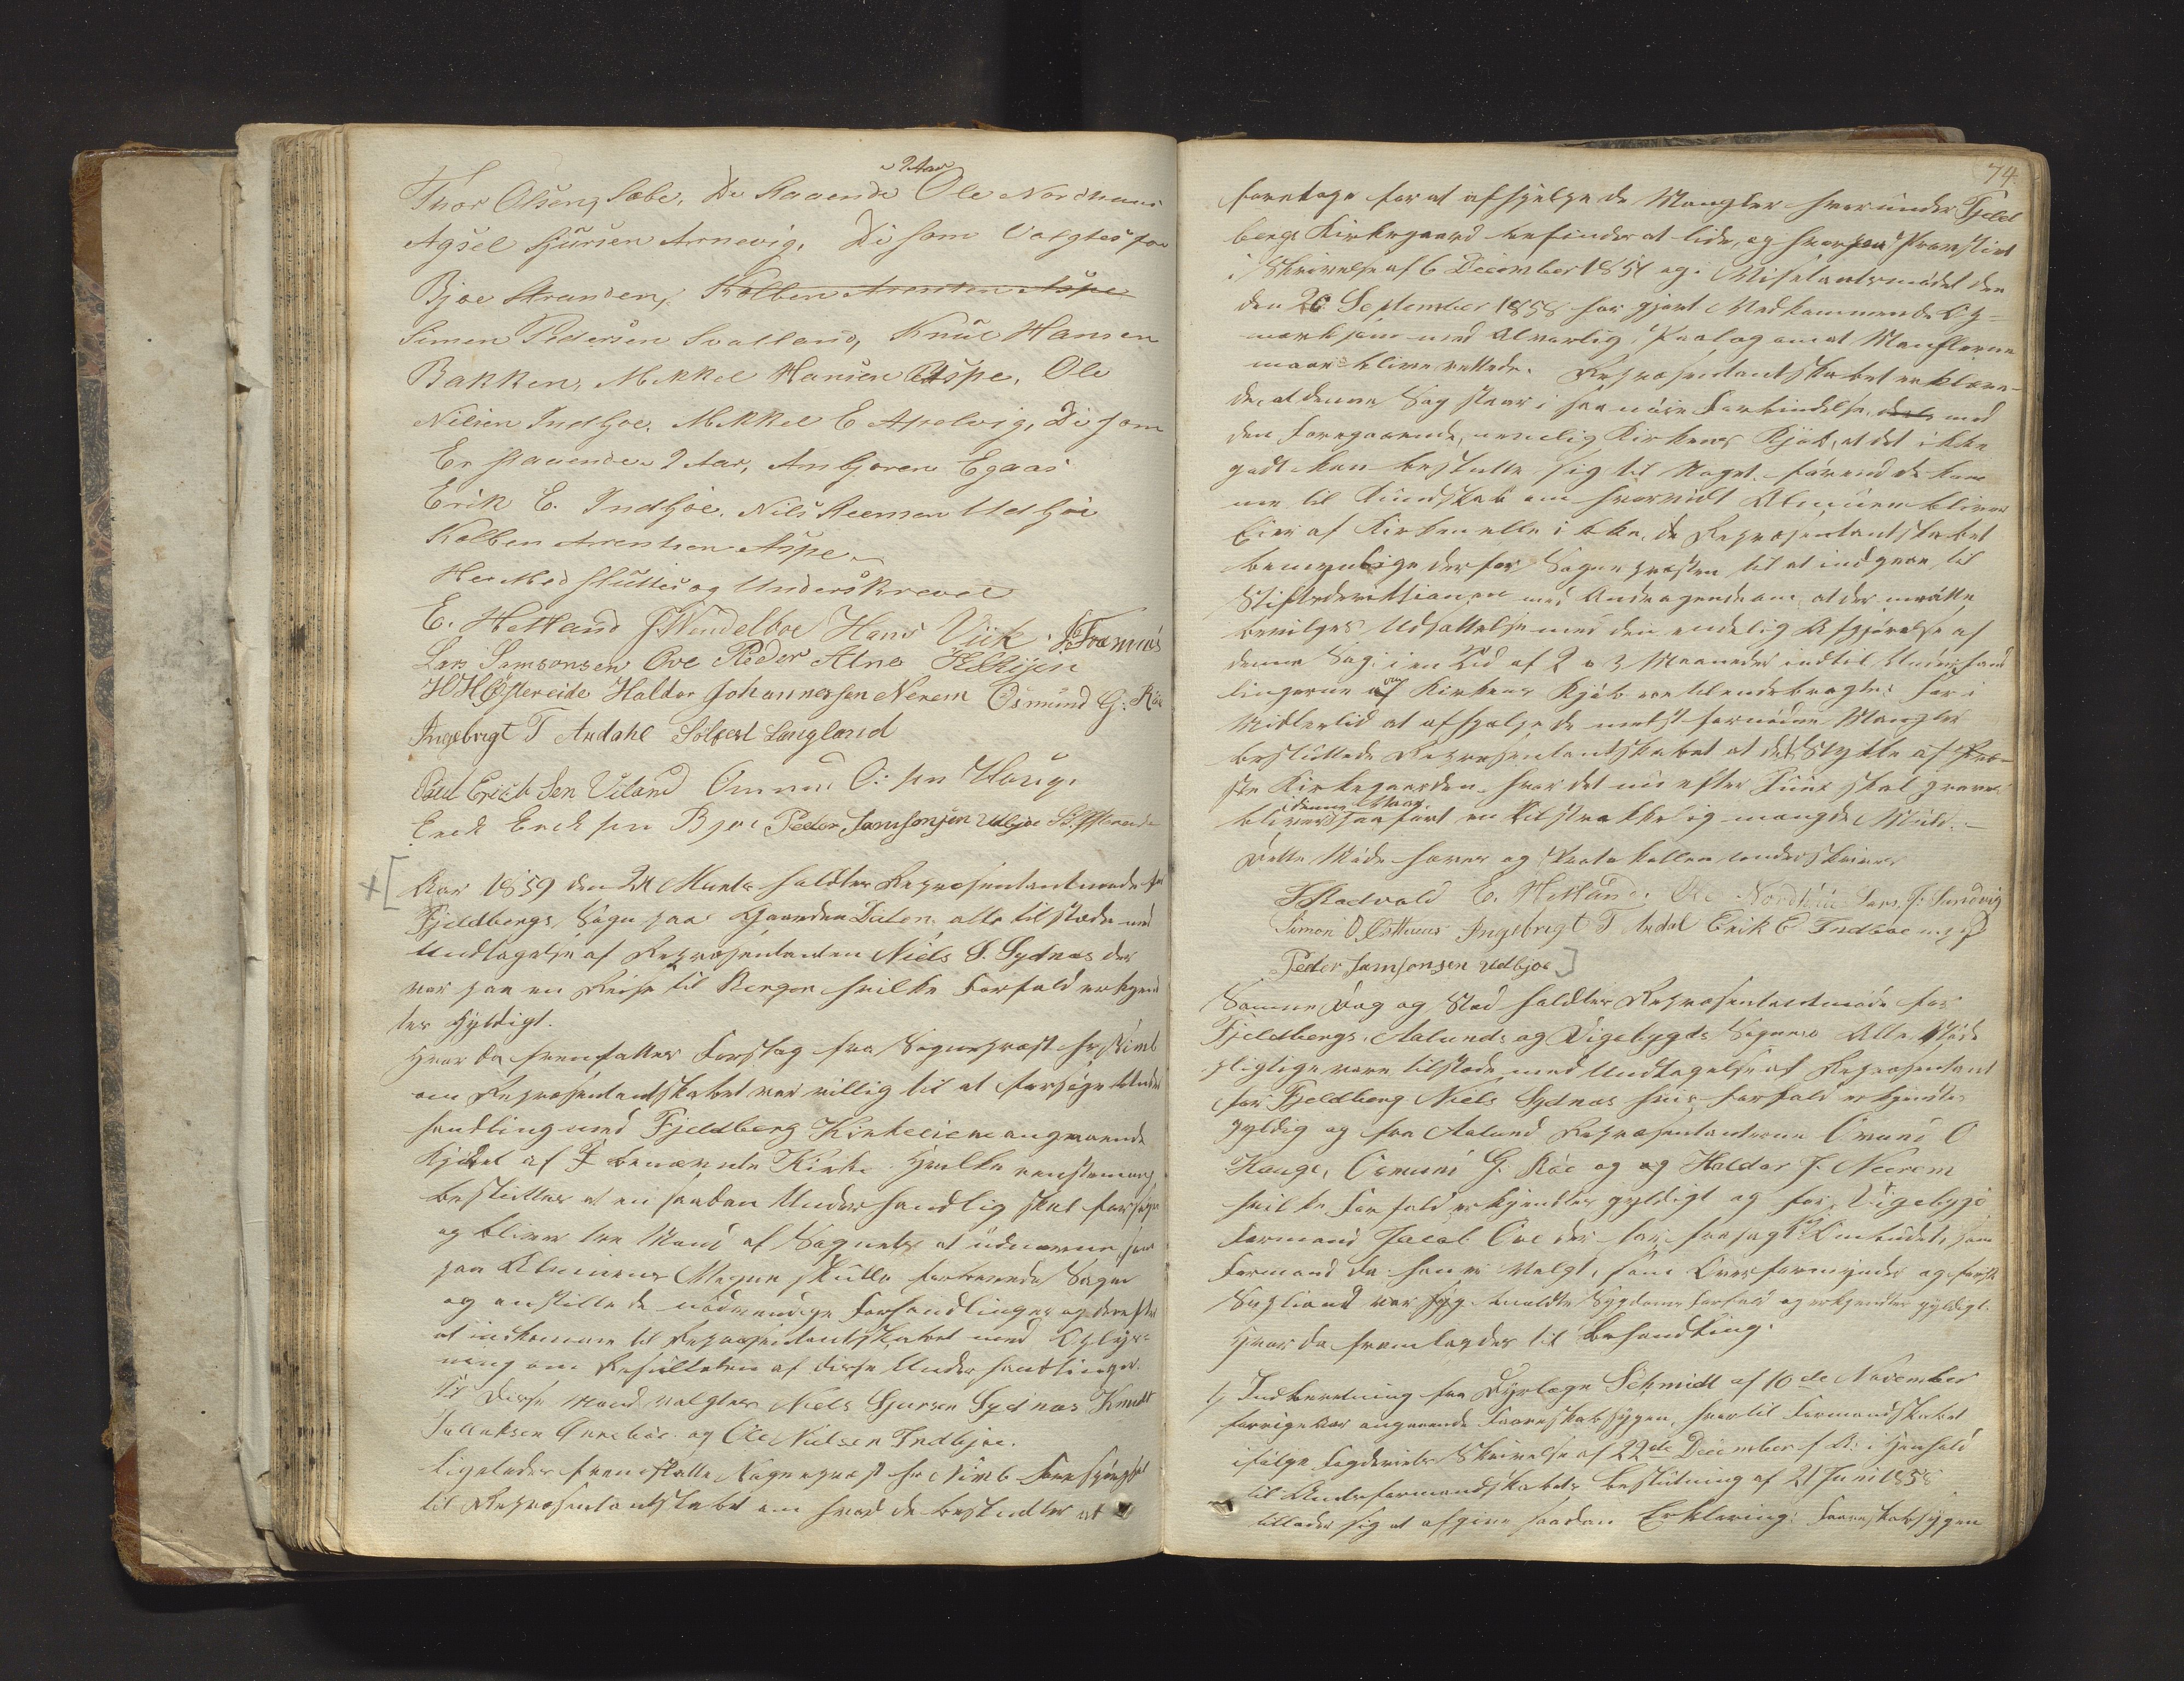 2 Aar
Thor Olsen Sæbe, De Staaende Ole Nordhuus
Agsel Sjursen Arnevig, Di som Valgtes for
Bjoe Stranden, Kolben Arentsen Aspe
Simen Pedersen Svolland, Knud Hansen
Bakken, Mikkel Hansen Aspe, Ole
Nilsen Indbjoe, Mikkel E Apelvig, Di som
Er staaende 2 Aar, Anbjoren Egaas
Erik E. Indbjoe, Nils Reemer Udbjoe
Kolben Arentsen Aspe
Hermed sluttes og Underskrevet
E. Hetland J Wendelboe Hans Viik
Lars Samsonsen Ove Peder Alne
H H Østereide Haldor Johannessen Nerem Osmund G. Röe
Ingebrigt T Ardahl Solfest Langland
Poul Erichsen Viland Omund O: sen Haug
Erek Erek sen Bjoe Peder Samsonsen Udbjoe
Aar 1859 den 21 Marts holdtes Repræsentantmøde for
Fjeldbergs Sogn paa Gaarden Dalen, alle tilstæde med
Undtagelse af Repræsentanten Niels S. Sydnæs der
var paa en Reise til Bergen hvilke Forfald erkjend
tes Gyldigt.
Hvor da fremsattes Forslag fra Sognepræst Hr Nimb
om Repræsentantskabet var villig til at forsøge Under
handling med Fjeldberg Kirkeeiere angaaende
Kjöbet af benævnte Kirke. Hvilke eenstemmig
besluttes at en saadan Underhandlig skal forsøges
og bliver tre Mænd af Sognets at udnævne, som
paa Almuens Vegne skulle foretrede Sagen
og anstille de nødvendige Forhandlinger og derefter
at indkomme til Repræsentantskabet med Oplys-
ning om Resultaten af disse Underhandlinger.
Til disse Mænd valgtes Niels Sjursen Sydnæs Knudt
Tollaksen Gunneboe og Ole Nielsen Indbjoe.
Ligeledes fremstilte Sognepræst Hr Nimb Forespörgsel
til Repræsentantskabet om hvad de besluttes at
74
foretage for at afhjelpe de Mangler hvorunder Fjeld
bergs Kirkegaard befindes at lide, og hvorpaa Provstiet
i Skrivelse af 6 December 1854 og i Visitatsmødet den
den 26 September 1858 har gjort Vedkommende Op-
mærksom med Alvorlig Paalæg om at Manglerne
maae blive rettede. Repræsentantskabet erklære-
de, at denne Sag staar i saa nöie Forbindelse med
den Foregaaende, nemlig Kirkens Kjöb, at det ikke
godt kan beslutte sig til Noget førend de kom
mer til Kundskab om hvorvidt Almuen bliver
Eier af Kirken eller ikke, da Repræsentantskabet
bemyndige derfor Sognepræsten til at indgaae til
Stiftsdirektionen med Andragende om, at der maatte
bevilges Udsættelse med den endelig Afgjørelse af
denne Sag i en Tid af 2 a 3 Maaneder indtil Underhand
lingerne om Kirkens Kjöb ere tilendebragte. For i
Midlertid at afhjælpe de meest fornødne Mangler
besluttede Repræsentantskabet at det Stykke af
Kirkegaarden hvor det nu efter Tuur skal graves
i denne Vaar
bliver paafört en tilstrækkelig mængde Muld.
Dette Møde hæves og Protokollen underskrives
E. Hetland Ole Nordhuus Lars J. Sundvig
Simon O. Østhuus Ingebrigt T Ardal Erik E Indbioe m p P
Peder Samsonsen Udbjoe
Samme Dag og Sted holdtes Repræsentantmøde for
Fjeldbergs, Aalunds og Vigebygds Sogne. Alle Møde
pligtige vare tilstæde med Undtagelse af Repræsentant
for Fjeldberg Niels Sydnæs hvis Forfald erkjendtes
gyldig og fra Aalund Repræsentanterne Omund O
Hauge, Osmund G. Röe og og Haldor J. Neerem
hvilke Forfald erkjendtes gyldigt og for Vigebygd
Formand Jacob Ove der har frasagt sig Ombudet, som
Formand da han er Valgt, som Overformynder og
var syg meldte Sygdoms Forfald og erkjendtes gyldigt.
Hvor da fremlagdes til Behandling.
1, Indberetning fra Dyrlæge Schmidt af 10de November
forrige Aar angaaende Faareskabsygen, hvortil Formandskabet
ifølge Fogderiets Skrivelse af 22de December f. A. i Henhold
til Amtsformandskabets Beslutning af 21 Juni 1858
tillades sig at afgive saadan Erklæring: Faareskabsygen